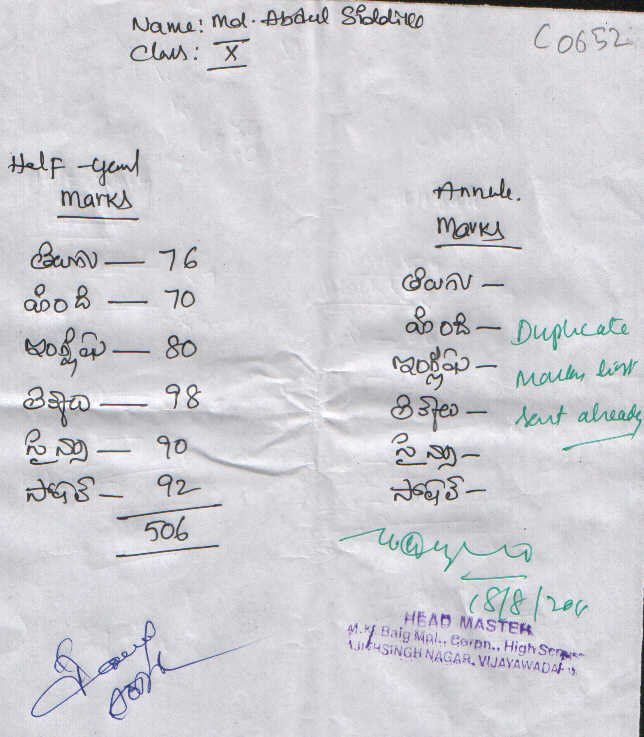 Name: Md. Abdul Siddikq
Class: X
C0652
Half-yearl
Marks
తెలుగు — 76
హింది — 70
ఇంగ్లీషు — 80
లెక్కలు — 98
సైన్సు — 90
సోషల్ — 92
506
Annule.
Marks
తెలుగు —
హింది —
ఇంగ్లీషు —
లెక్కలు —
సైన్సు —
సోషల్ —
Duplicate
Marks list
sent already
18/8/200
HEAD MASTER
Baig Mpl., Corpn., High
AJITHSINGH NAGAR, VIJAYAWADA